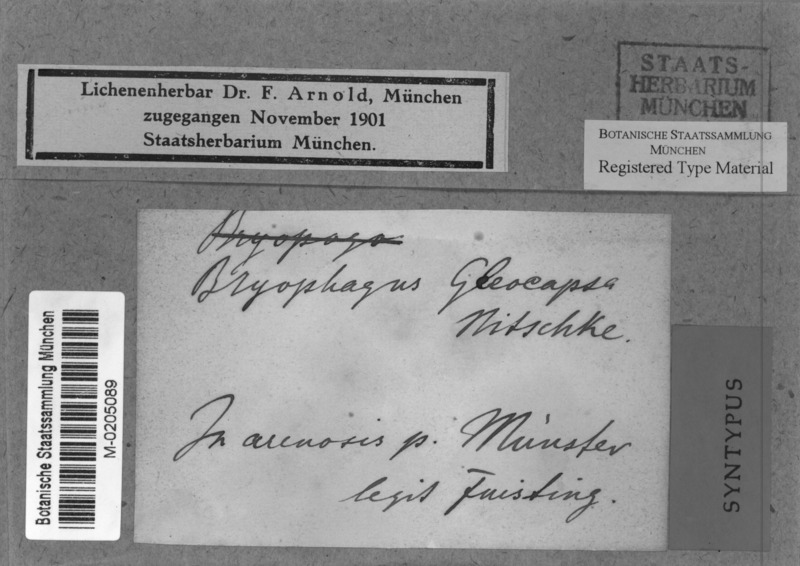 Lichenenherbar Dr. F. Arnold, München
zugegangen November 1901
Staatsherbarium München.
STAATS-
HERBARIUM
MÜNCHEN
BOTANISCHE STAATSSAMMLUNG
MÜNCHEN
Registered Type Material
Bryopogo
Bryophagus Gloeocapsa
Nitschke.
In arenosis p. Münster
legit Fuisting.
Botanische Staatssammlung München
M-0205089
SYNTYPUS